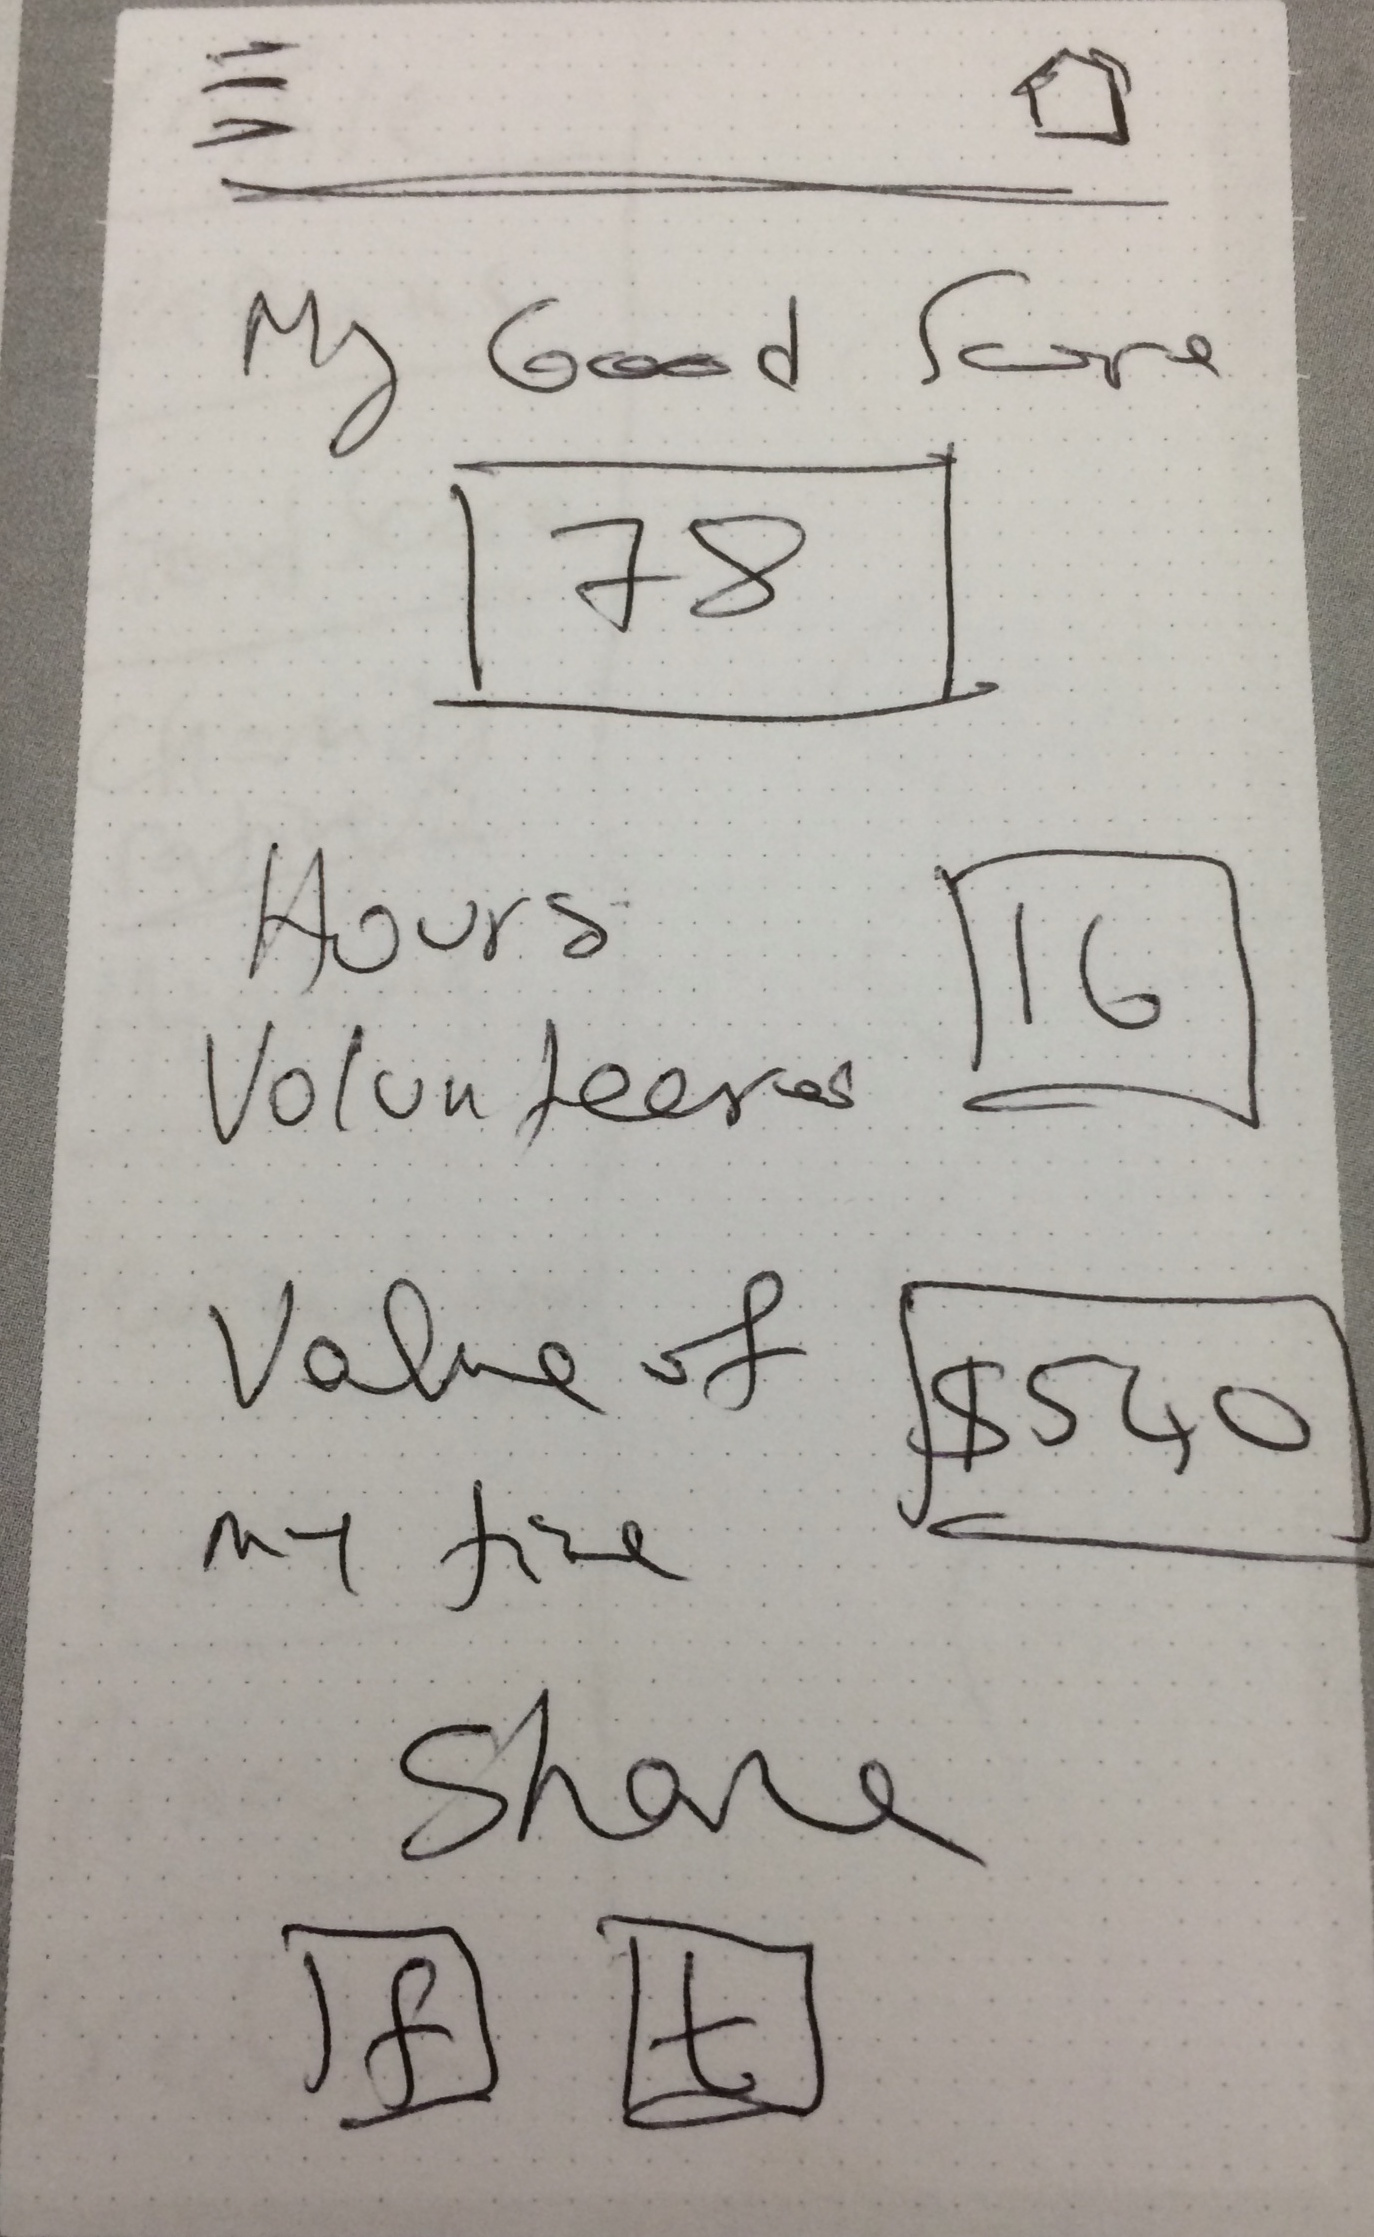 My Good Score
78
Hours
Volunteered
16
Value of
my time
$540
Share
f t